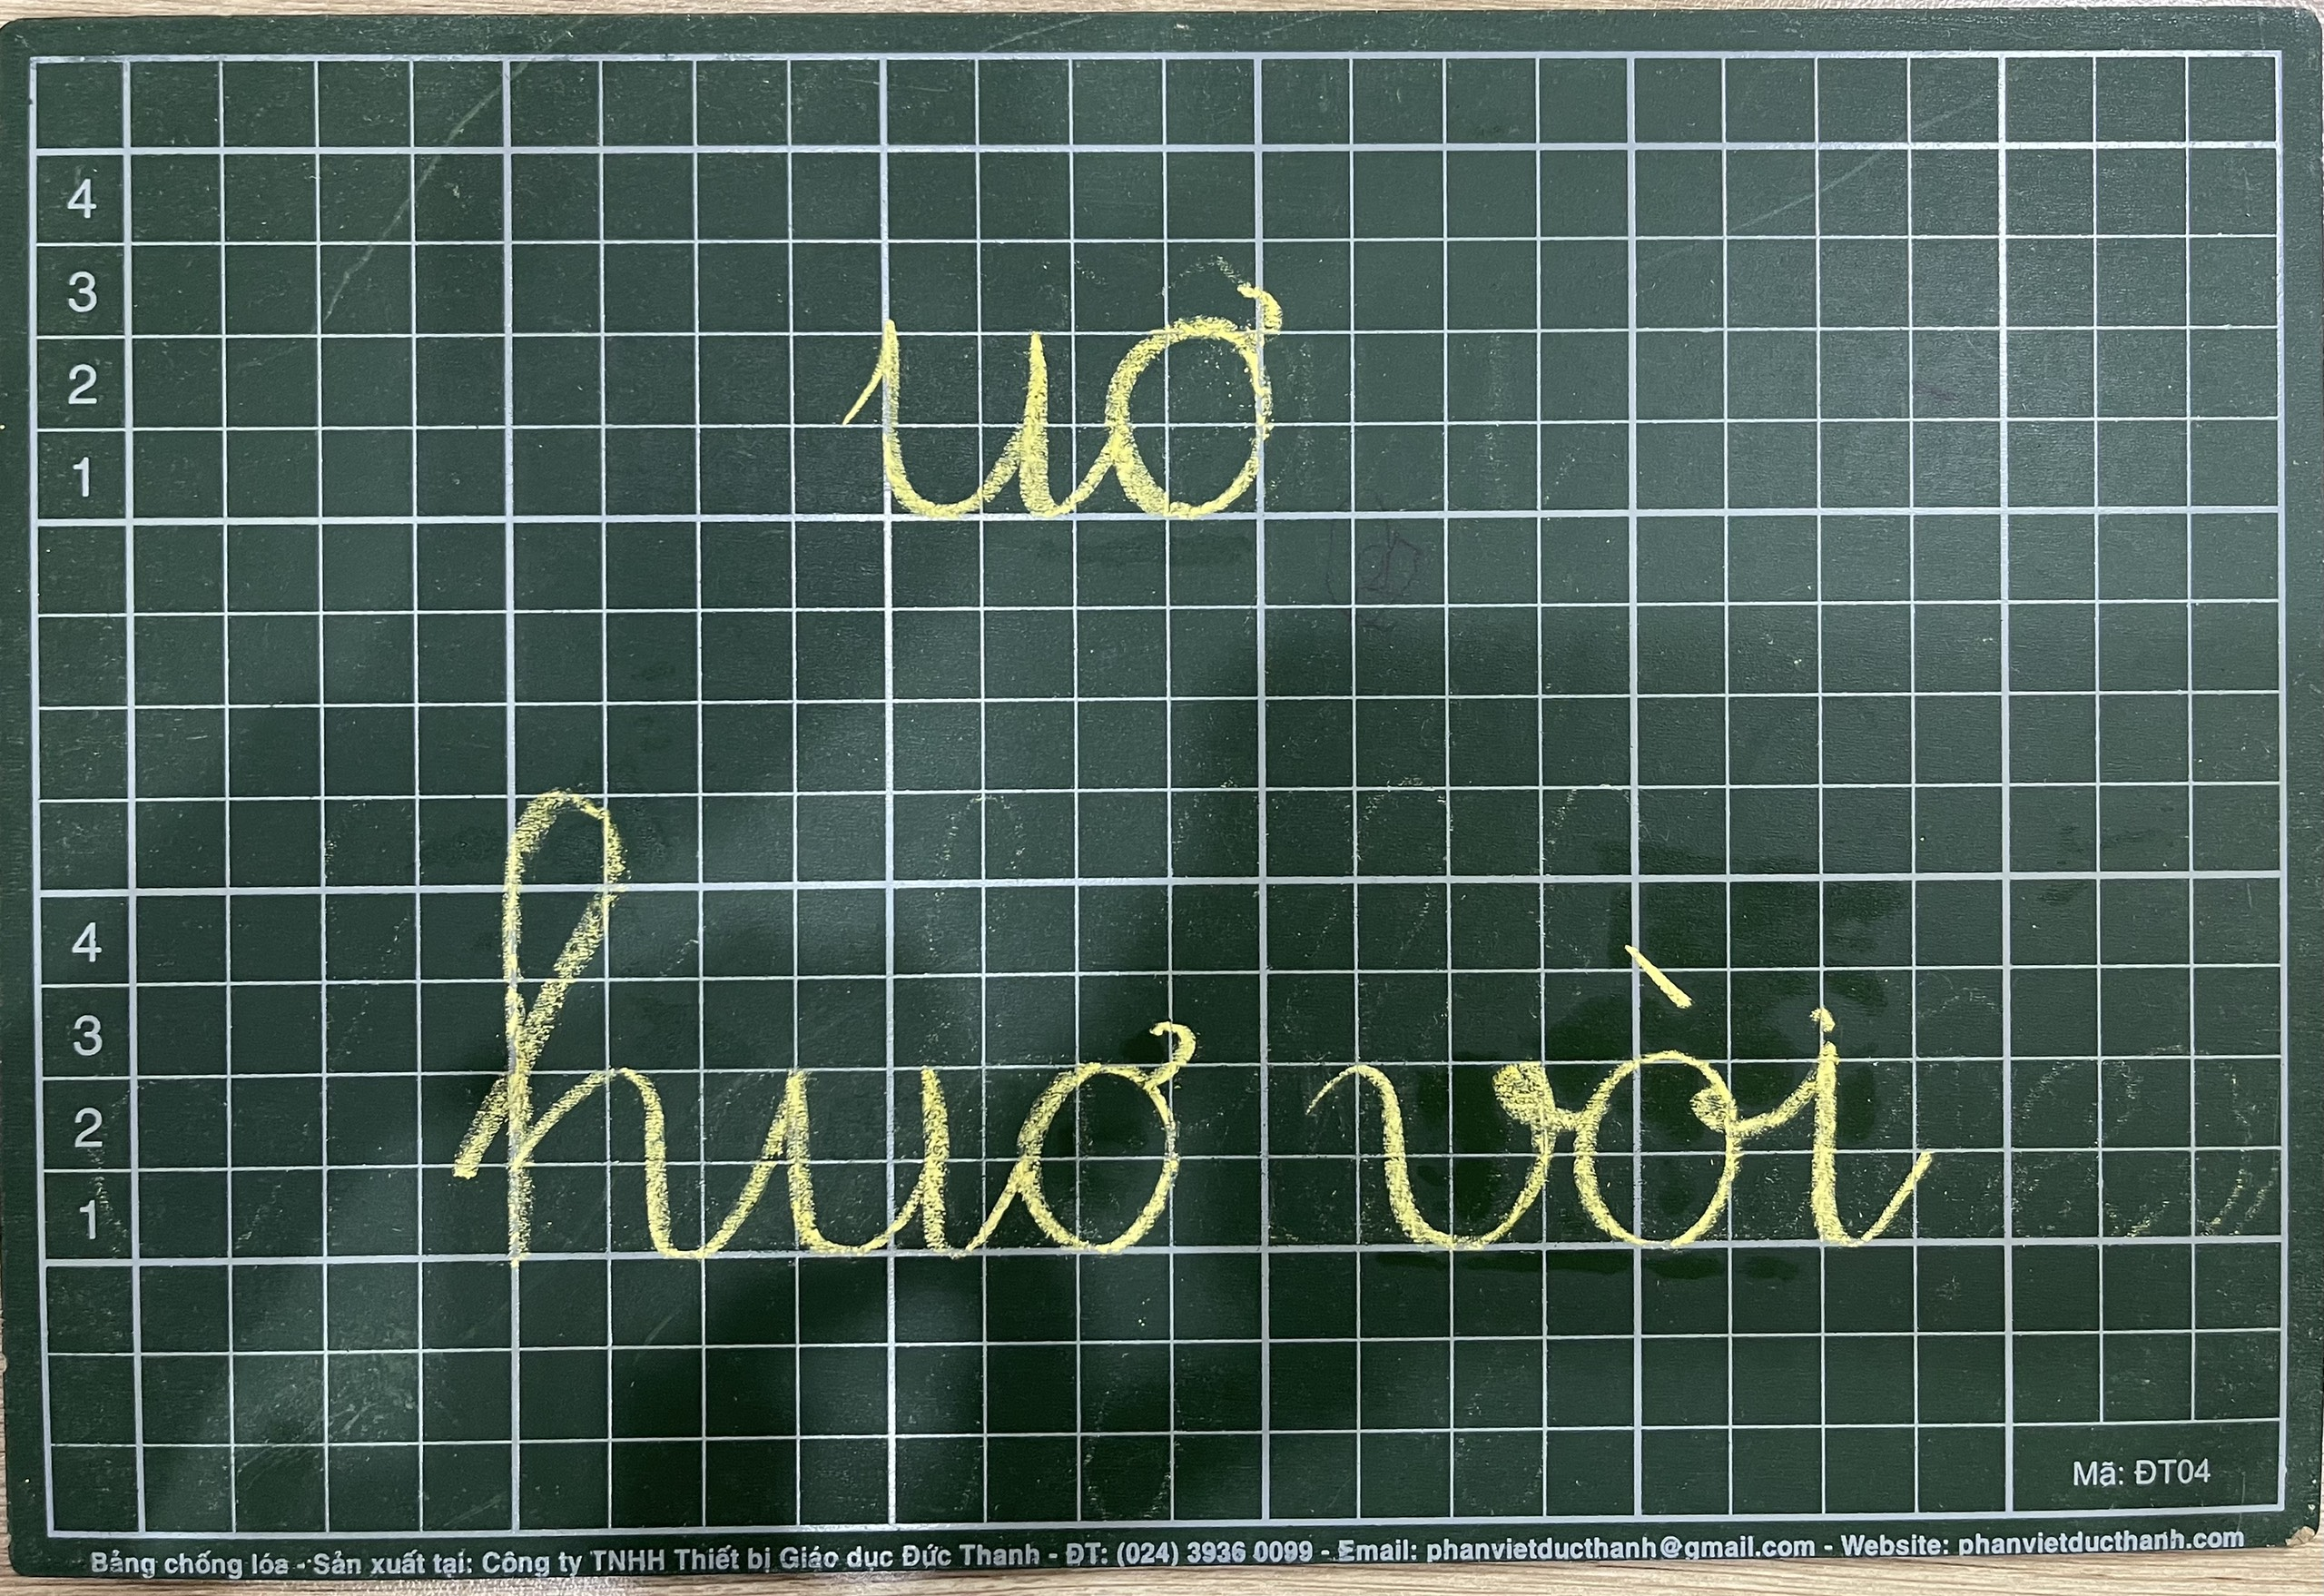 4
3
2
1
uơ
4
3
2
1
huơ vòi
Mã: ĐT04
Bảng chống lóa - Sản xuất tại: Công ty TNHH Thiết bị Giáo dục Đức Thanh - ĐT: (024) 3936 0099 - Email: phanvietducthanh@gmail.com - Website: phanvietducthanh.com